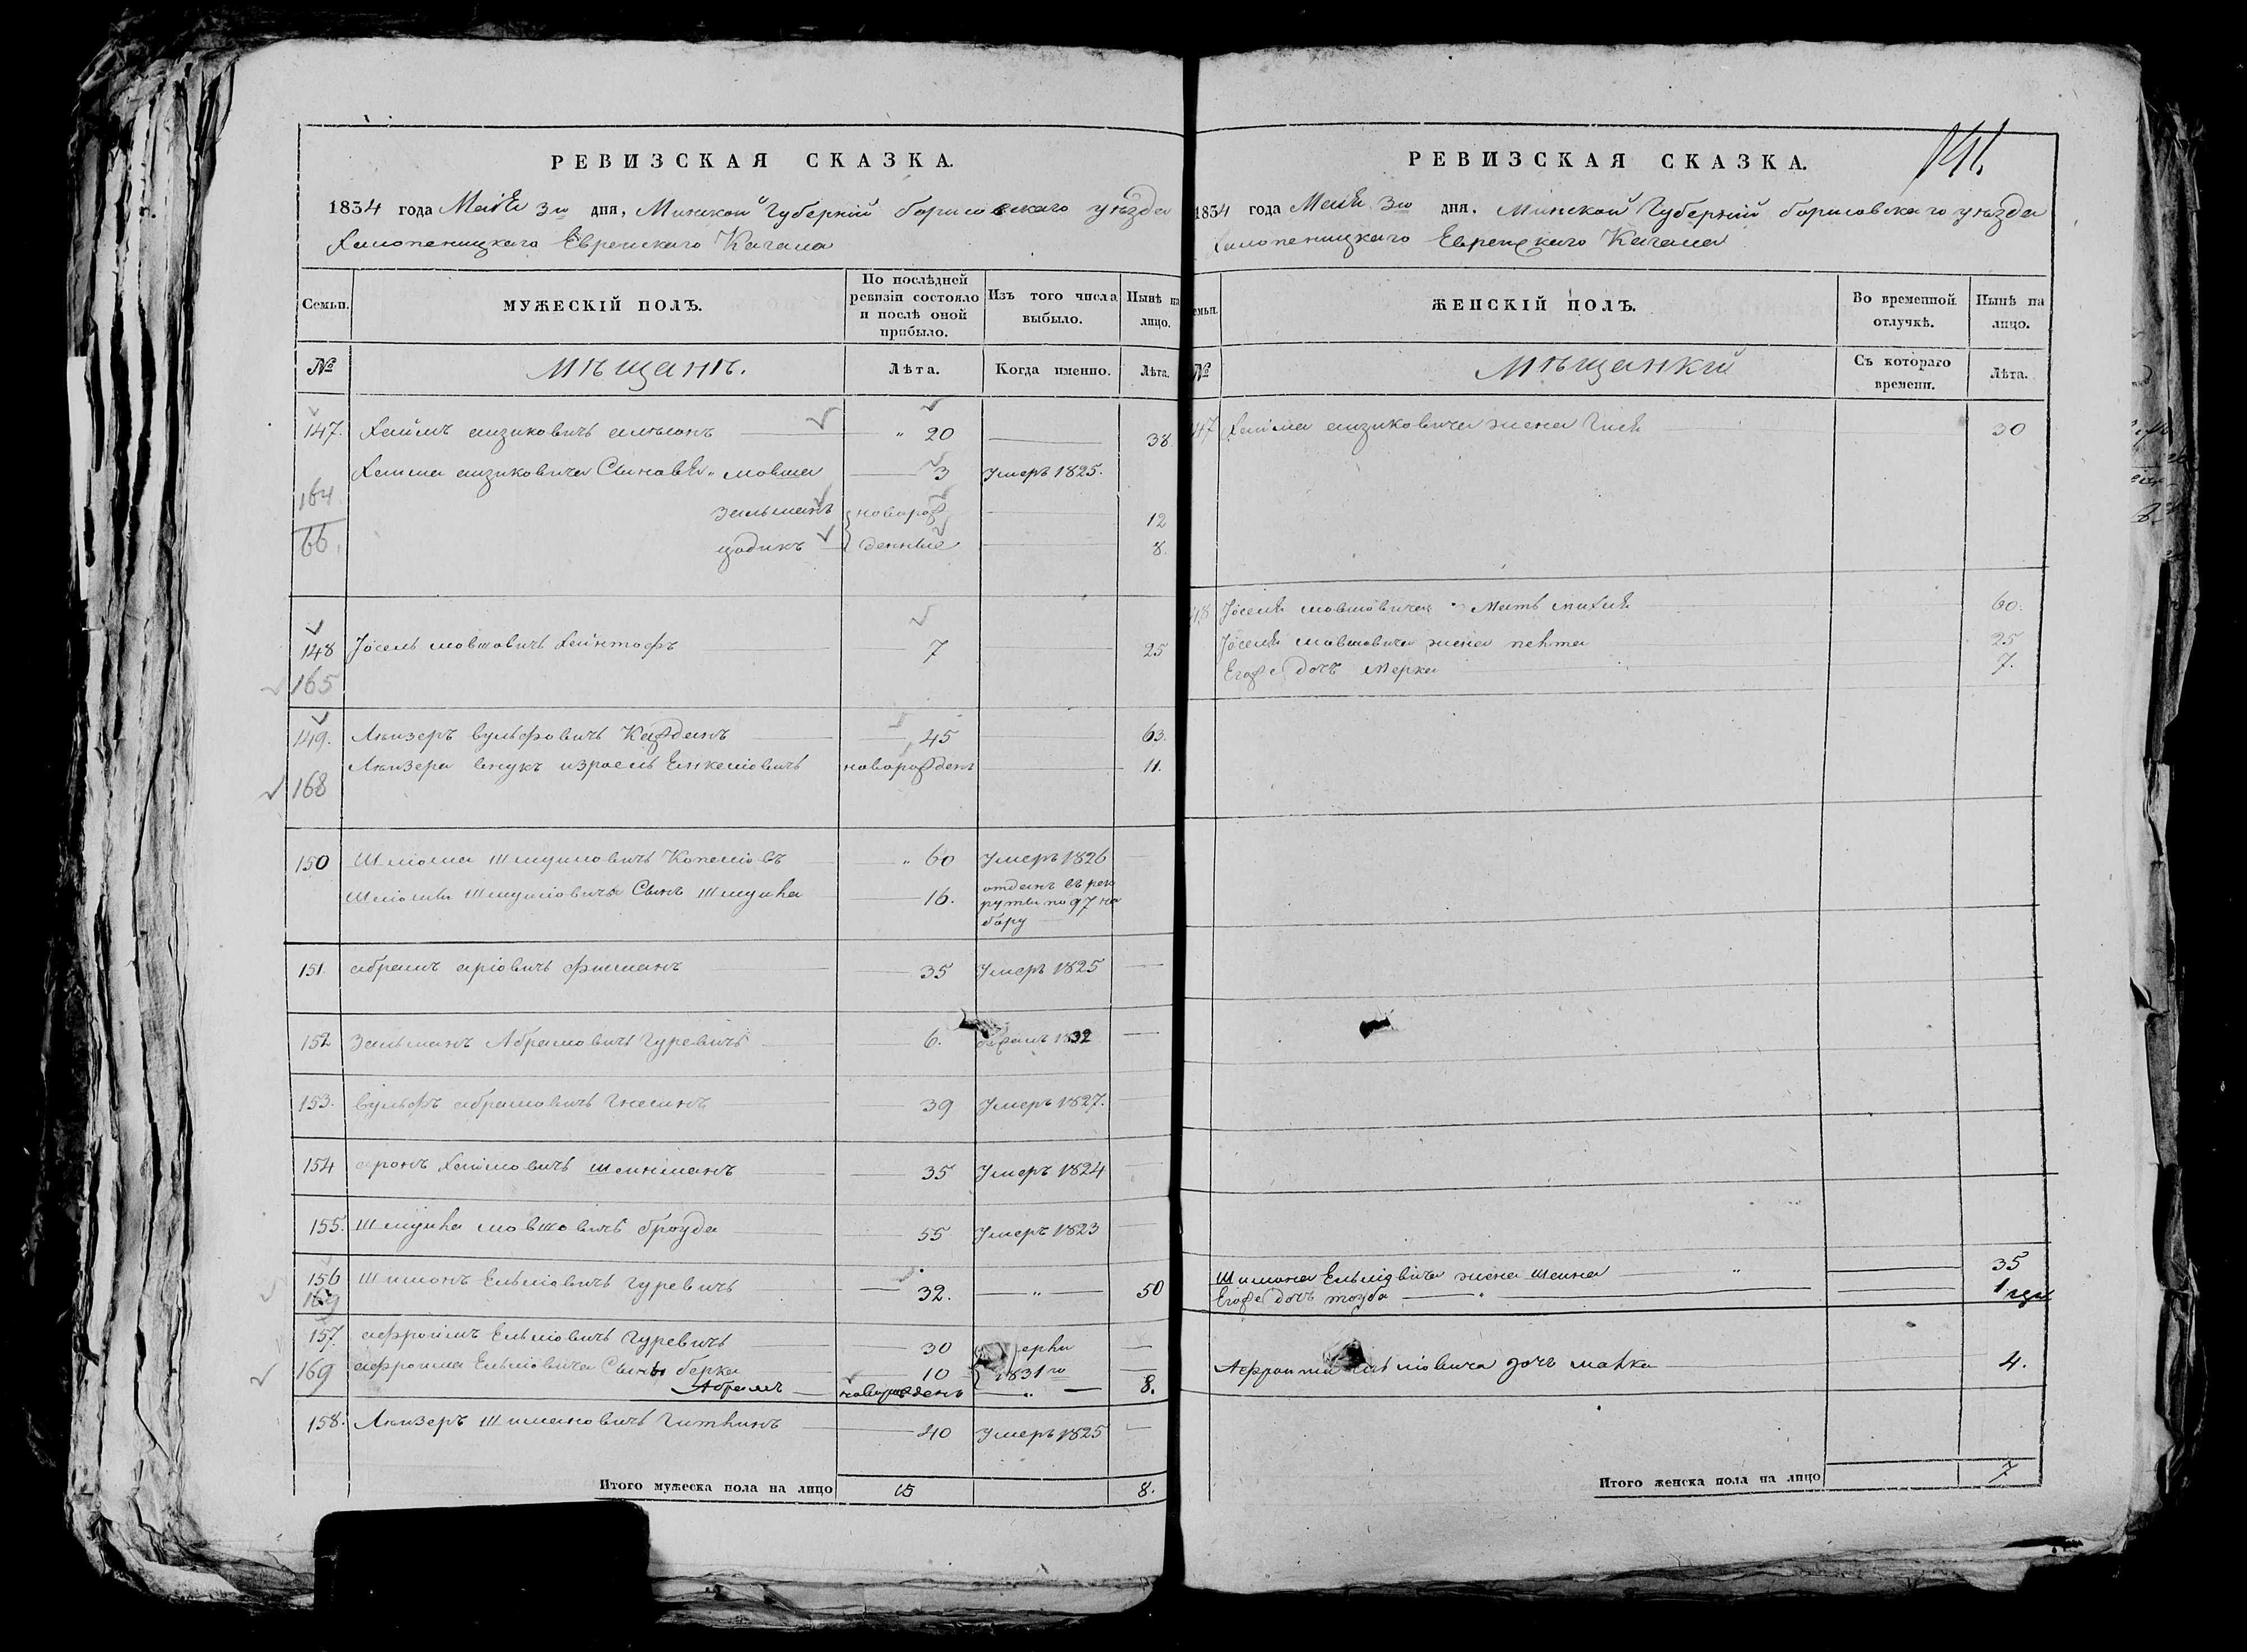 РЕВИЗСКАЯ СКАЗКА.
1834 года Маія 3го дня, Минской Губерніи Борисовскаго уѣзда
Холопеницкаго Еврейскаго Кагала
Семьи.
МУЖЕСКІЙ ПОЛЪ.
По послѣдней ревизіи состояло и послѣ оной прибыло.
Изъ того числа выбыло.
Нынѣ на лицо.
№
Мѣщанѣ.
Лѣта.
Когда именно.
Лѣта.
147. Хаимъ аизиковичъ 20 38
Хаима аизиковича Сыновья мовша 3 Умеръ 1825.
164
66.
зальманъ новорож 12
цодикъ денные 8.
148 Іосель мовшовичъ 7 25
165
149. Леизеръ вульфовичъ Кажданъ 45 63.
Леизера внукъ израель Енкеліовичъ новорожденъ 11.
168
150 Шліома Шмуиловичъ Копеліовъ 60 Умеръ 1826
Шліомы Шмуиловича Сынъ Шмуйла 16. отданъ въ рек
руты по 97 на
бору
151. абрамъ аріовичъ фишманъ 35 Умеръ 1825
152 Зальманъ Абрамовичъ Гуревичъ 6. 1832
153. вульфъ абрамовичъ Гнесинъ 39 Умеръ 1827.
154 аронъ Хаимовичъ шейнманъ 35 Умеръ 1824
155. Шмуйла мовшовичъ броуда 55 Умеръ 1823
156 Шимонъ Ельіовичъ гуревичъ 32. " 50
169
157. афроимъ Ельіовичъ Гуревичъ 30
169 афроима Ельіовича Сыны берка 10 1831го
Абрамъ новорожденъ " 8.
158. Леизеръ Шимановичъ 40 Умеръ 1825
Итого мужеска пола на лицо 15 8.
141.
РЕВИЗСКАЯ СКАЗКА.
1834 года Маія 3го дня, Минской Губерніи борисовскаго уѣзда
Холопеницкаго Еврейскаго Кагала
ЖЕНСКІЙ ПОЛЪ.
Во временной отлучкѣ.
Нынѣ на лицо.
№
Мѣщанкій
Съ котораго времени.
Лѣта.
47 Хаима аизиковича жена 30
48 Іоселя мовшовича Мать 60.
Іоселя мовшовича жена 25
Егоже дочъ Мерка 7.
Шимона Ельіовича жена Шейна " 35
Егоже дочъ тоуба " 1
Афроима Ельіовича дочъ 4.
Итого женска пола на лицо 7